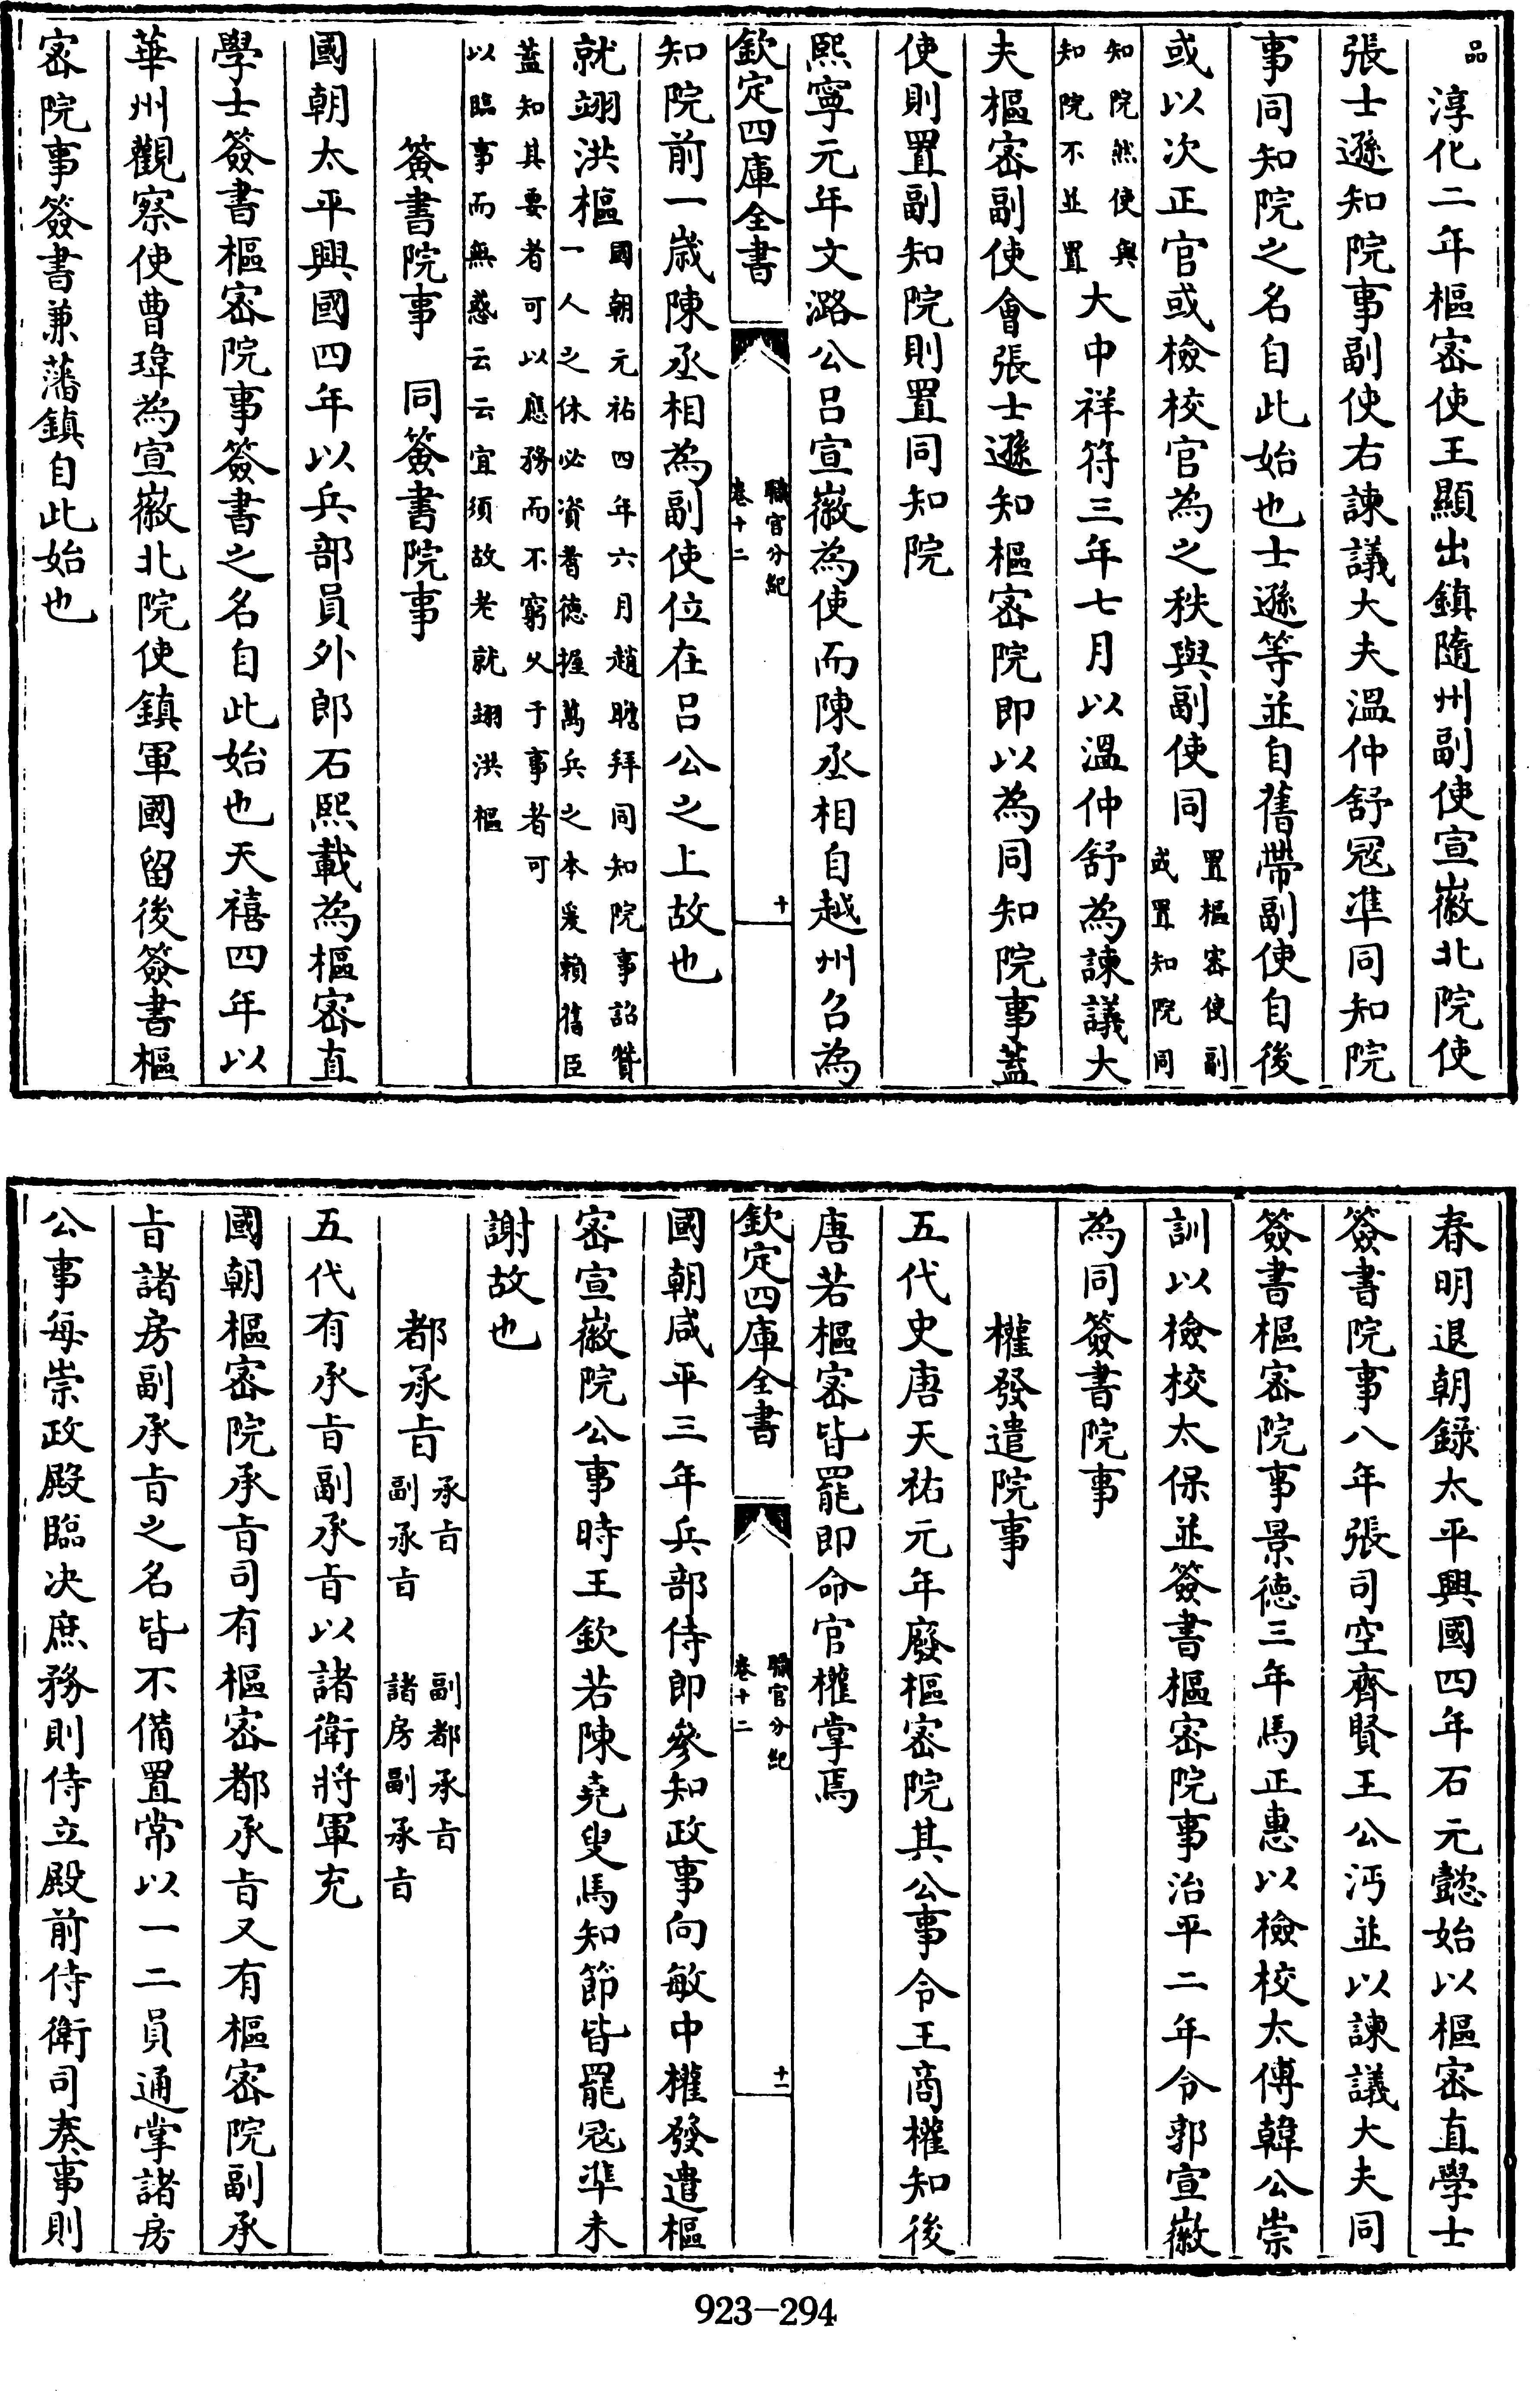 品淳化二年樞密使王顯出鎮隨州副使宣徽北院使
張士遜知院事副使右諫議大夫溫仲舒冦準同知院
事同知院之名自此始也士遜等並自舊帶副使自後
或以次正官或檢校官為之秩與副使同置樞密使副或置知院同
知院然使與知院不並置大中祥符三年七月以溫仲舒為諫議大
夫樞密副使會張士遜知樞密院即以為同知院事蓋
使則置副知院則置同知院
熙寧元年文潞公呂宣徽為使而陳丞相自越州召為
欽定四庫全書
職官分紀
卷十二
十
知院前一歲陳丞相為副使位在呂公之上故也
就翊洪樞國朝元祐四年六月趙瞻拜同知院事詔贊一人之休必資耆德握萬兵之本爰賴舊臣
蓋知其要者可以應務而不窮久于事者可以臨事而無惑云云宜須故老就翊洪樞
簽書院事 同簽書院事
國朝太平興國四年以兵部員外郎石熙載為樞密直
學士簽書樞密院事簽書之名自此始也天禧四年以
華州觀察使曹瑋為宣徽北院使鎮軍國留後簽書樞
密院事簽書兼藩鎮自此始也
春明退朝錄太平興國四年石元懿始以樞密直學士
簽書院事八年張司空齊賢王公沔並以諫議大夫同
簽書樞密院事景德三年馬正惠以檢校太傅韓公崇
訓以檢校太保並簽書樞密院事治平二年令郭宣徽
為同簽書院事
權發遣院事
五代史唐天祐元年廢樞密院其公事令王商權知後
唐若樞密皆罷即命官權掌焉
欽定四庫全書
職官分紀
卷十二
十一
國朝咸平三年兵部侍郎參知政事向敏中權發遣樞
密宣徽院公事時王欽若陳堯叟馬知節皆罷冦準未
謝故也
都承旨承旨副承旨 副都承旨諸房副承旨
五代有承旨副承旨以諸衛將軍充
國朝樞密院承旨司有樞密都承旨又有樞密院副承
旨諸房副承旨之名皆不備置常以一二員通掌諸房
公事每崇政殿臨決庶務則侍立殿前侍衛司奏事則
923—294